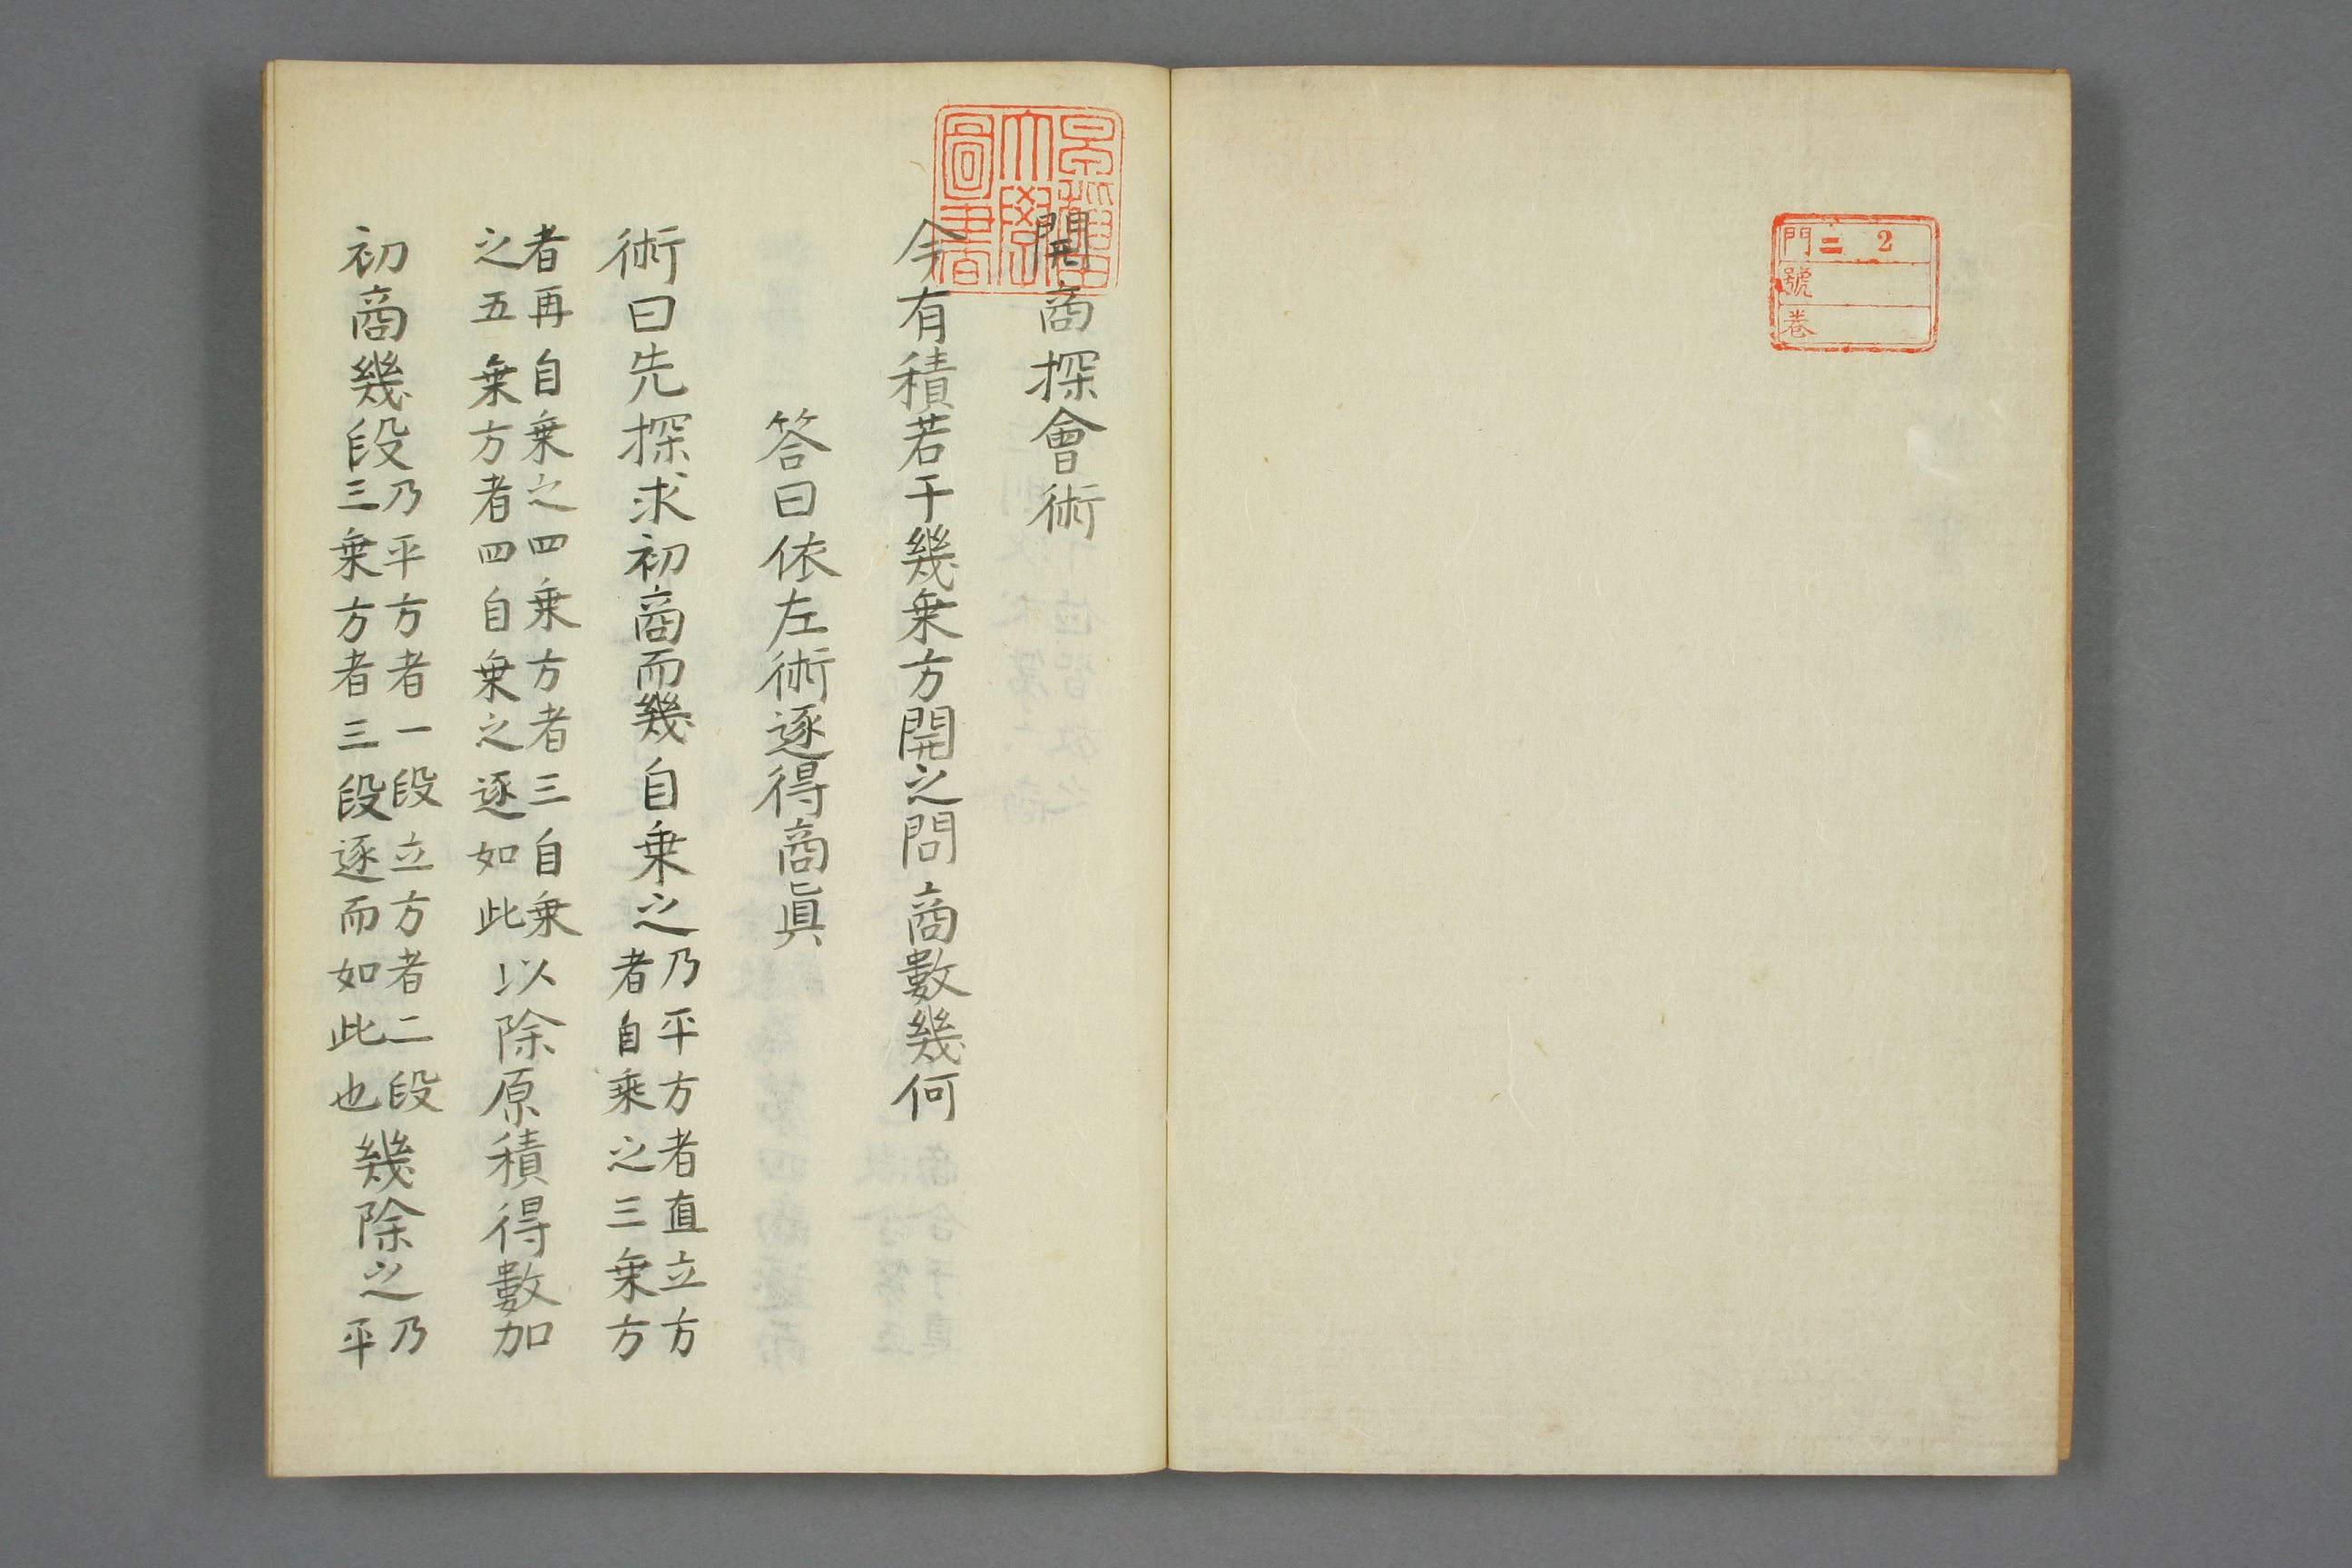 門二 2
號
卷
開商探會術
今有積若干幾乗方開之問商數幾何
答曰依左術逐得商眞
術曰先探求初商而幾自乗之乃平方者直立方
者自乘之三乗方
者再自乗之四乗方者三自乗
之五乗方者四自乗之逐如此以除原積得數加
初商幾段乃平方者一段立方者二段
三乗方者三段逐而如此也幾除之乃
平